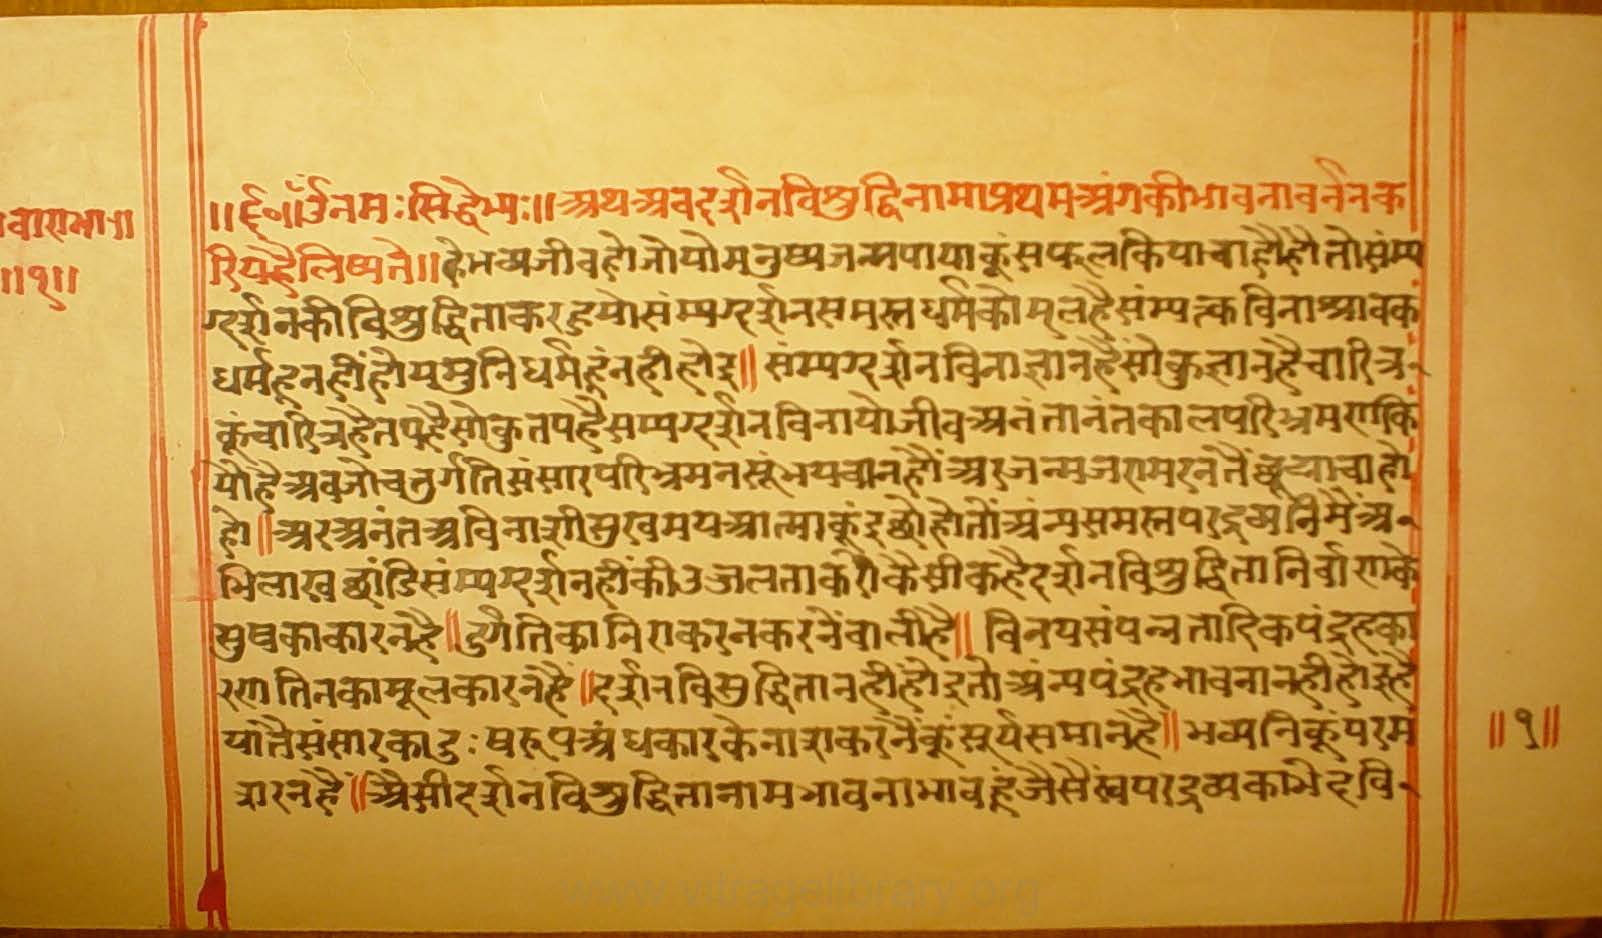 ॥ ९ ॥
॥६०॥ ॐ नमः सिद्धेभ्यः ॥ अथ अब दर्शनविशुद्धिनामाप्रथमअंगकीभावनावर्ननक
रियहैलिष्यते ॥ हेभव्यजीवहोजोयोमनुष्यजन्मपायाकूंसफलकियाचाहौहौतोसंम्य
ग्दर्शनकीविशुद्धिताकरहुयोसंम्यग्दर्शनसमस्तधर्मकोमूलहैसंम्यत्कविनाश्रावक
धर्महूनहींहोयमुनिधर्महूंनहीहोइ ॥ संम्यग्दर्शनविनाज्ञानहैसोकुज्ञानहैचारित्र-
कूंचारित्रहैतपहैसोकुतपहैसम्यग्दर्शनविनायोजीवअनंतानंतकालपरिभ्रमणकि
योहैअबजोचतुर्गतिसंसारपरिभ्रमनसूंभयवानहौंअरजन्मजरामरनतैंछूट्याचाहो
हो ॥ अरअनंतअविनाशीसुखमयआत्माकूंइछोहोतोंअंन्यसमस्तपरद्रव्यनिमैंअ-
भिलाखछांडिसंम्यग्दर्शनहींकीउजलताकरौकैसीकहैदर्शनविशुद्धितानिर्वाणके
सुषकाकारनहै ॥ दुर्गतिकानिराकरनकरनेंवालीहै ॥ विनयसंपन्नतादिकपंद्रहका
रणतिनकामूलकारनहै ॥ दर्शनविसुद्धितानहींहोइतोअंन्यपंद्रहभावनानहीहोइहै
यांतैसंसारकादुःषरूपअंधकारकेनाशकरंनैंकूंसूर्यसमानहै ॥ भव्यनिकूंपरमं
शरनहै ॥ अैसीदर्शनविशुद्धितानामभावनाभावहूंजैसैंस्वपरद्रव्यकाभेदवि-
॥ १ ॥
www.vitragelibrary.org